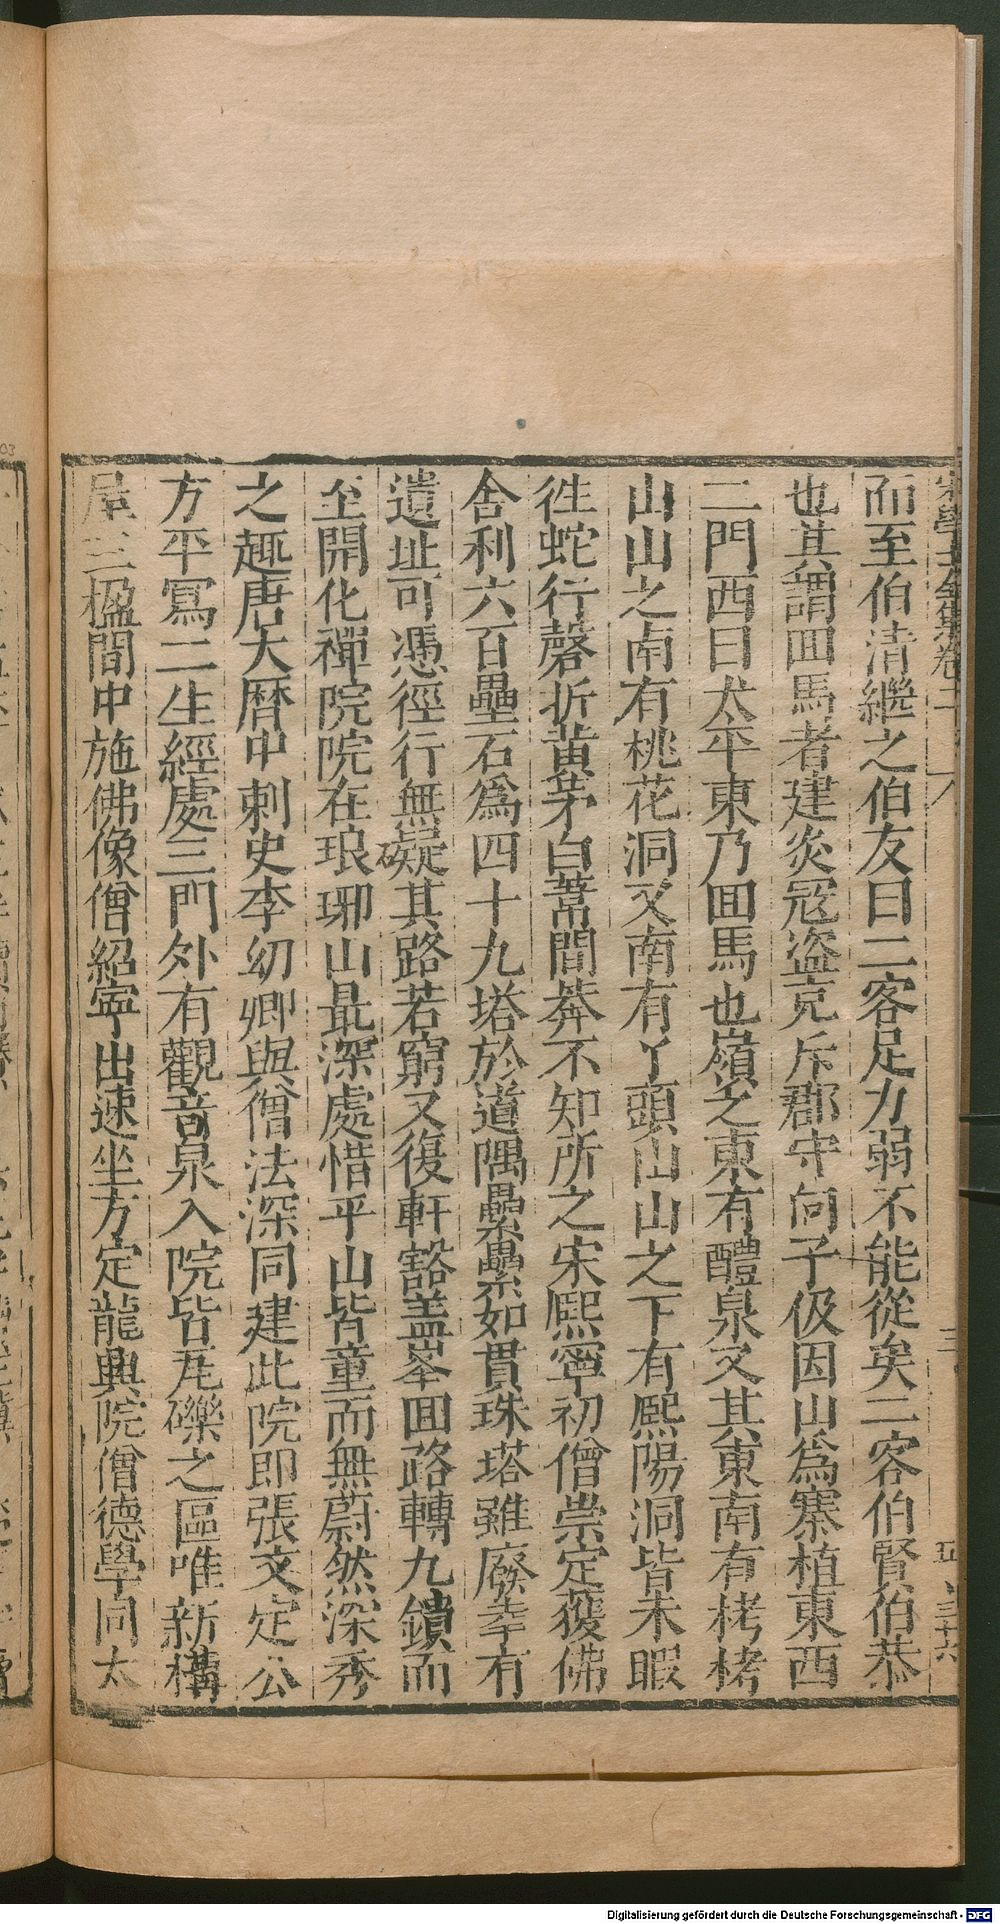 而至伯清繼之伯友曰二客足力弱不能從矣二客伯賢伯恭
也其謂囬馬者建炎冦盗充斥郡守向子伋因山爲寨植東西
二門西曰太平東乃囬馬也嶺之東有醴泉又其東南有栲栳
山山之南有桃花洞又南有丫頭山山之下有熙陽洞皆未暇
徃蛇行磬折黄茅白葦間莽不知所之宋熙寧初僧崇定獲佛
舎利六百壘石爲四十九塔於道隅纍纍如貫珠塔雖廢幸有
遺址可憑徑行無礙其路若窮又復軒豁盖峯囬路轉九鎖而
至開化禪院院在琅琊山最深處惜乎山皆童而無蔚然深秀
之趣唐大曆中刺史李幼卿與僧法深同建此院即張文定公
方平寫二生經處三門外有觀音泉入院皆瓦礫之區唯新構
屋三楹間中施佛像僧紹寧出速坐方定龍興院僧德學同太
宋學士全集卷二
三
五三十六
Digitalisierung gefördert durch die Deutsche Forschungsgemeinschaft - DFG